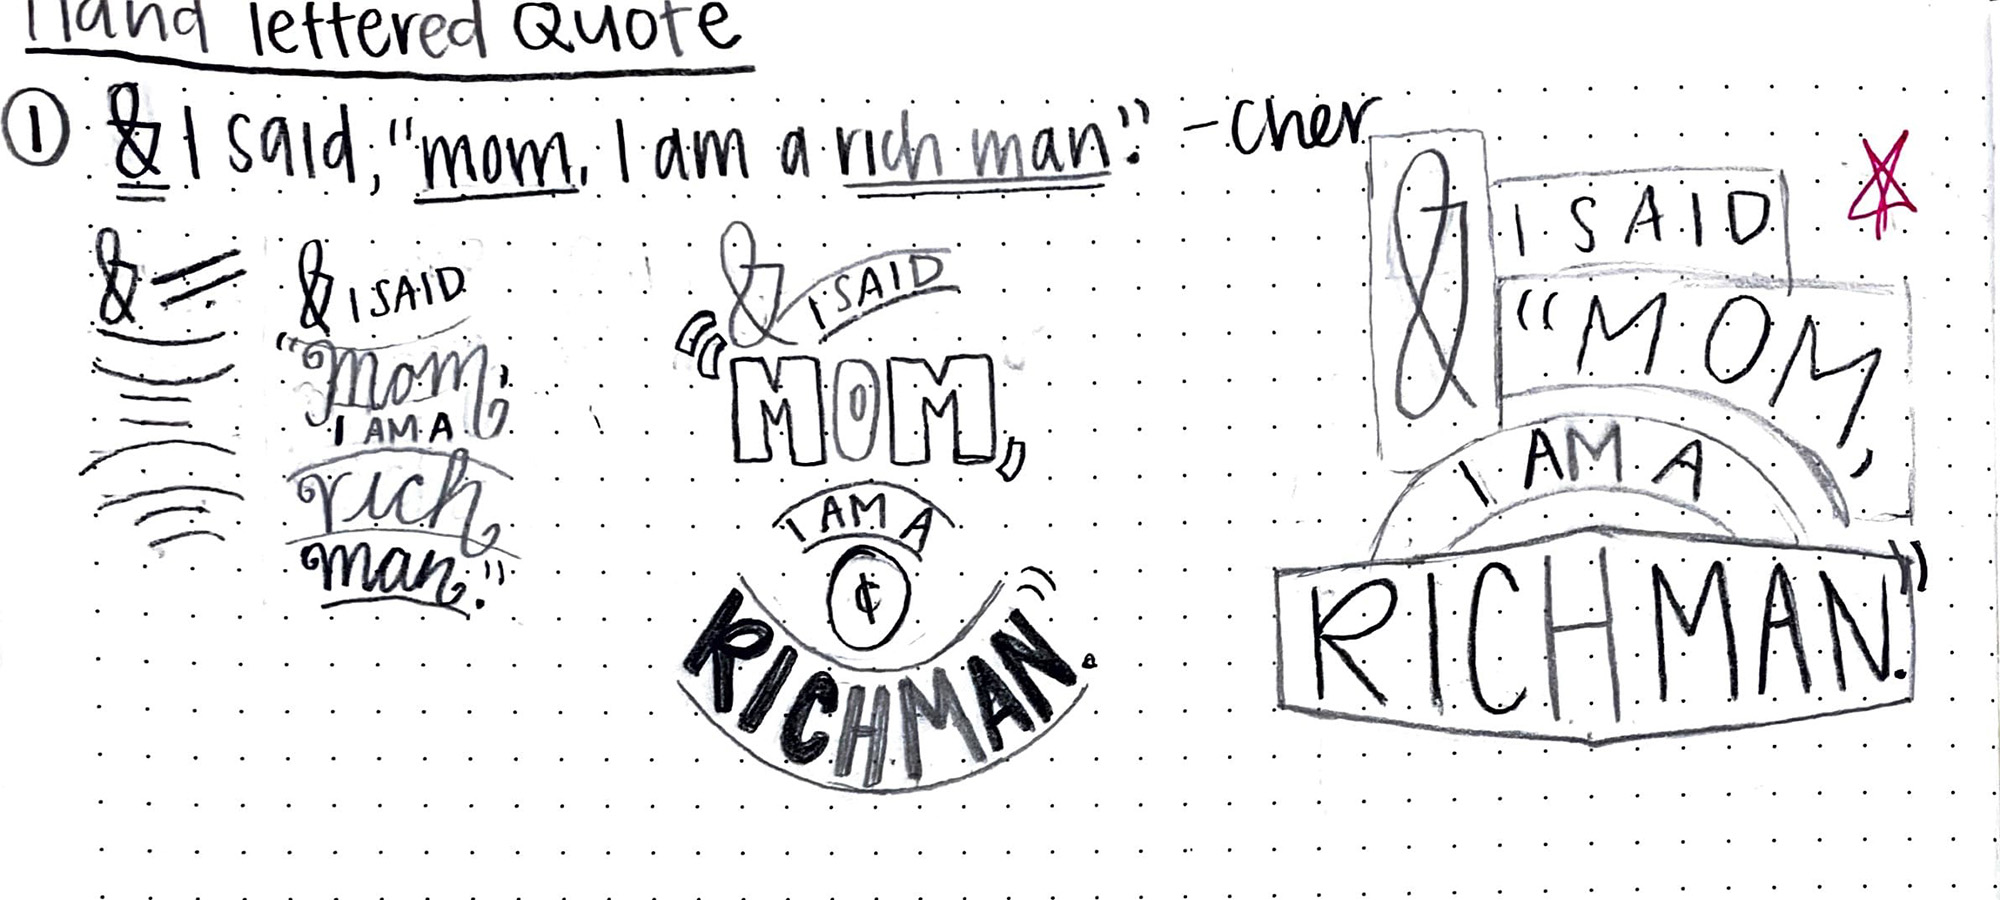 Hand lettered Quote
① & I said, "mom, I am a rich man." -Cher
&
& I SAID
"mom,
I AM A
rich
man."
& I SAID
"MOM,
I AM A
¢
RICH MAN."
& I SAID
"MOM,
I AM A
RICH MAN."